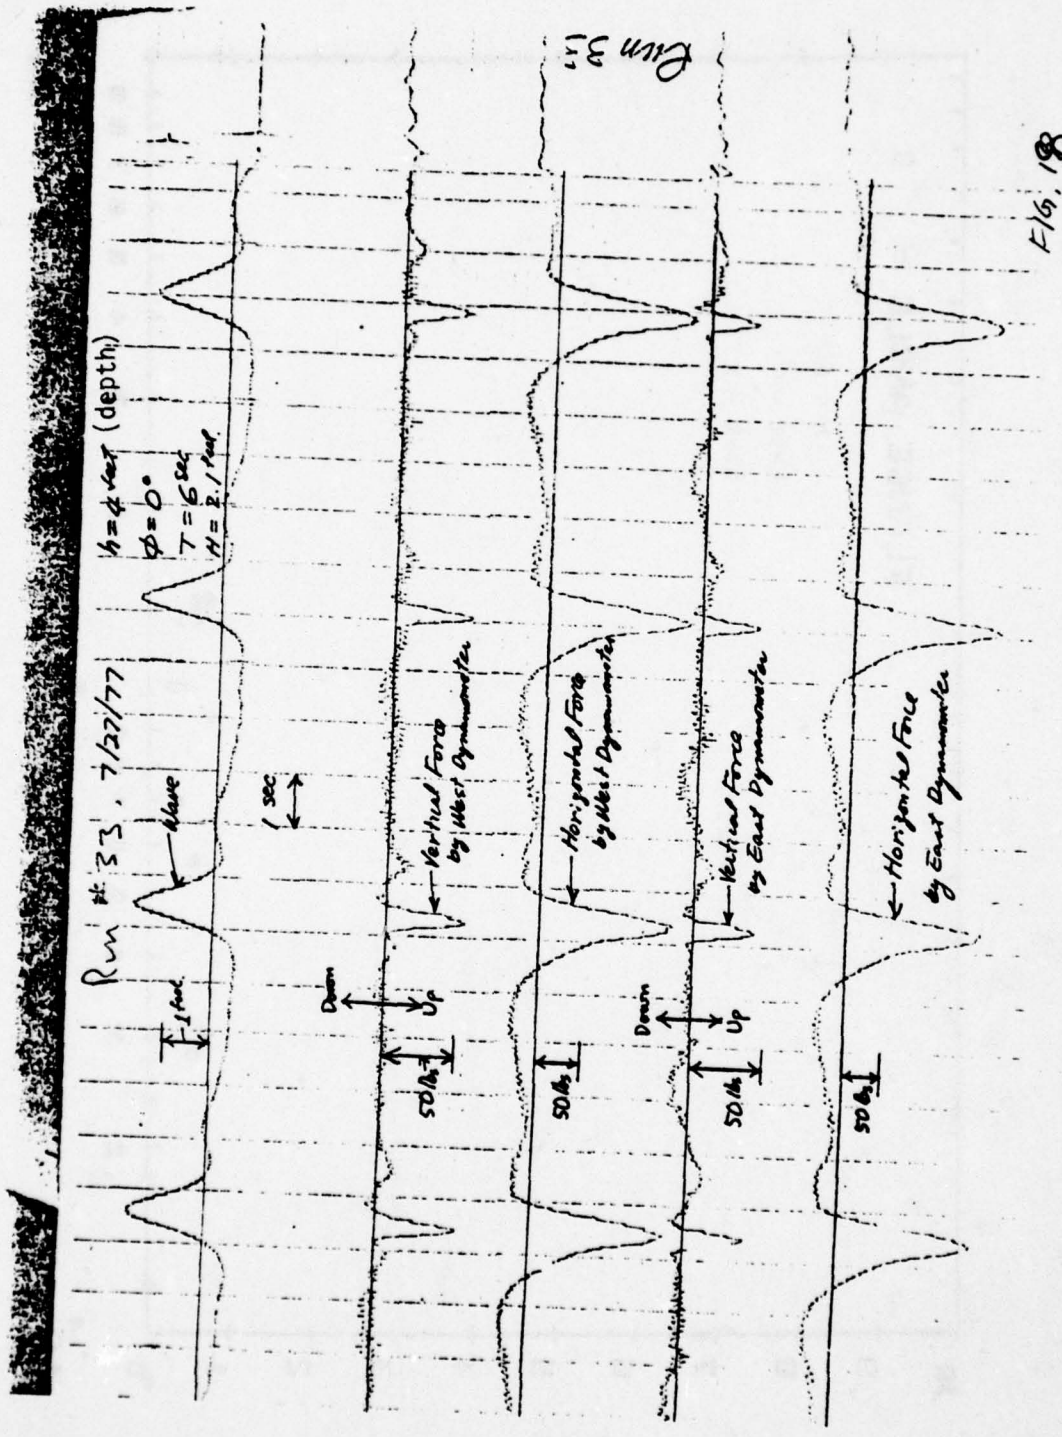 Run # 33, 7/27/77
h=4 feet (depth)
φ=0°
T=6 sec
H=2.1 feet
Wave
1 foot
1 sec
Down
Up
50 lbs
Vertical Force
by West Dynamometer
50 lbs
Horizontal Force
by West Dynamometer
Down
Up
50 lbs
Vertical Force
by East Dynamometer
50 lbs
Horizontal Force
by East Dynamometer
Run 33
FIG. 18